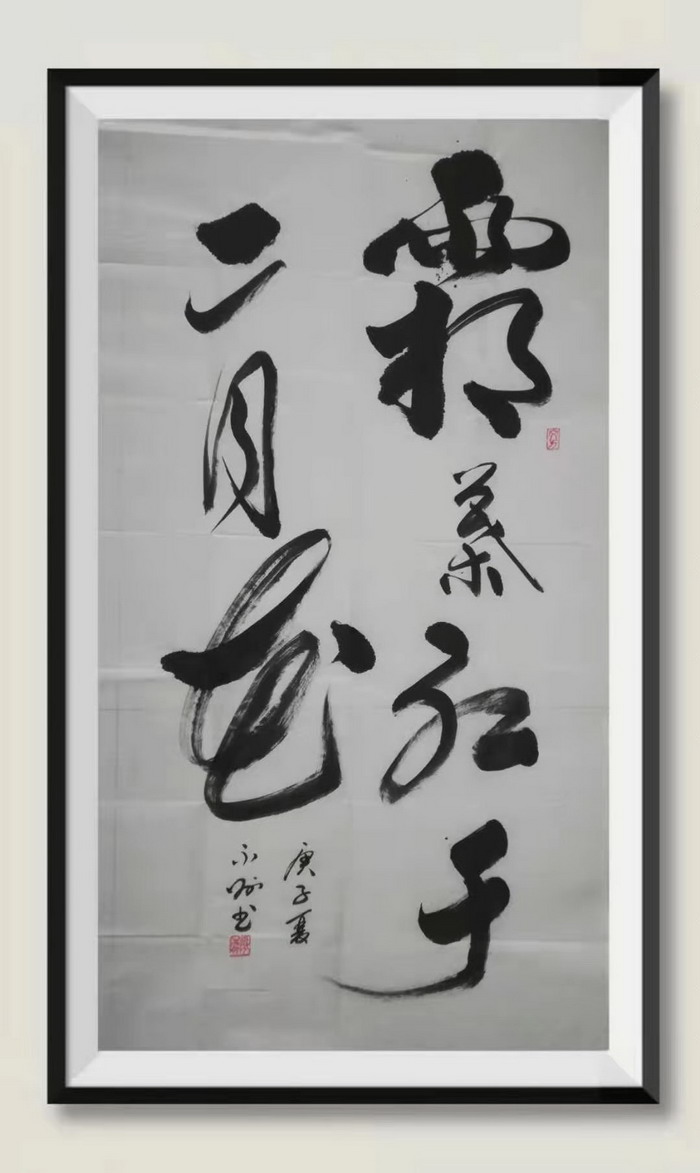 霜葉红于
二月花
庚子夏
书